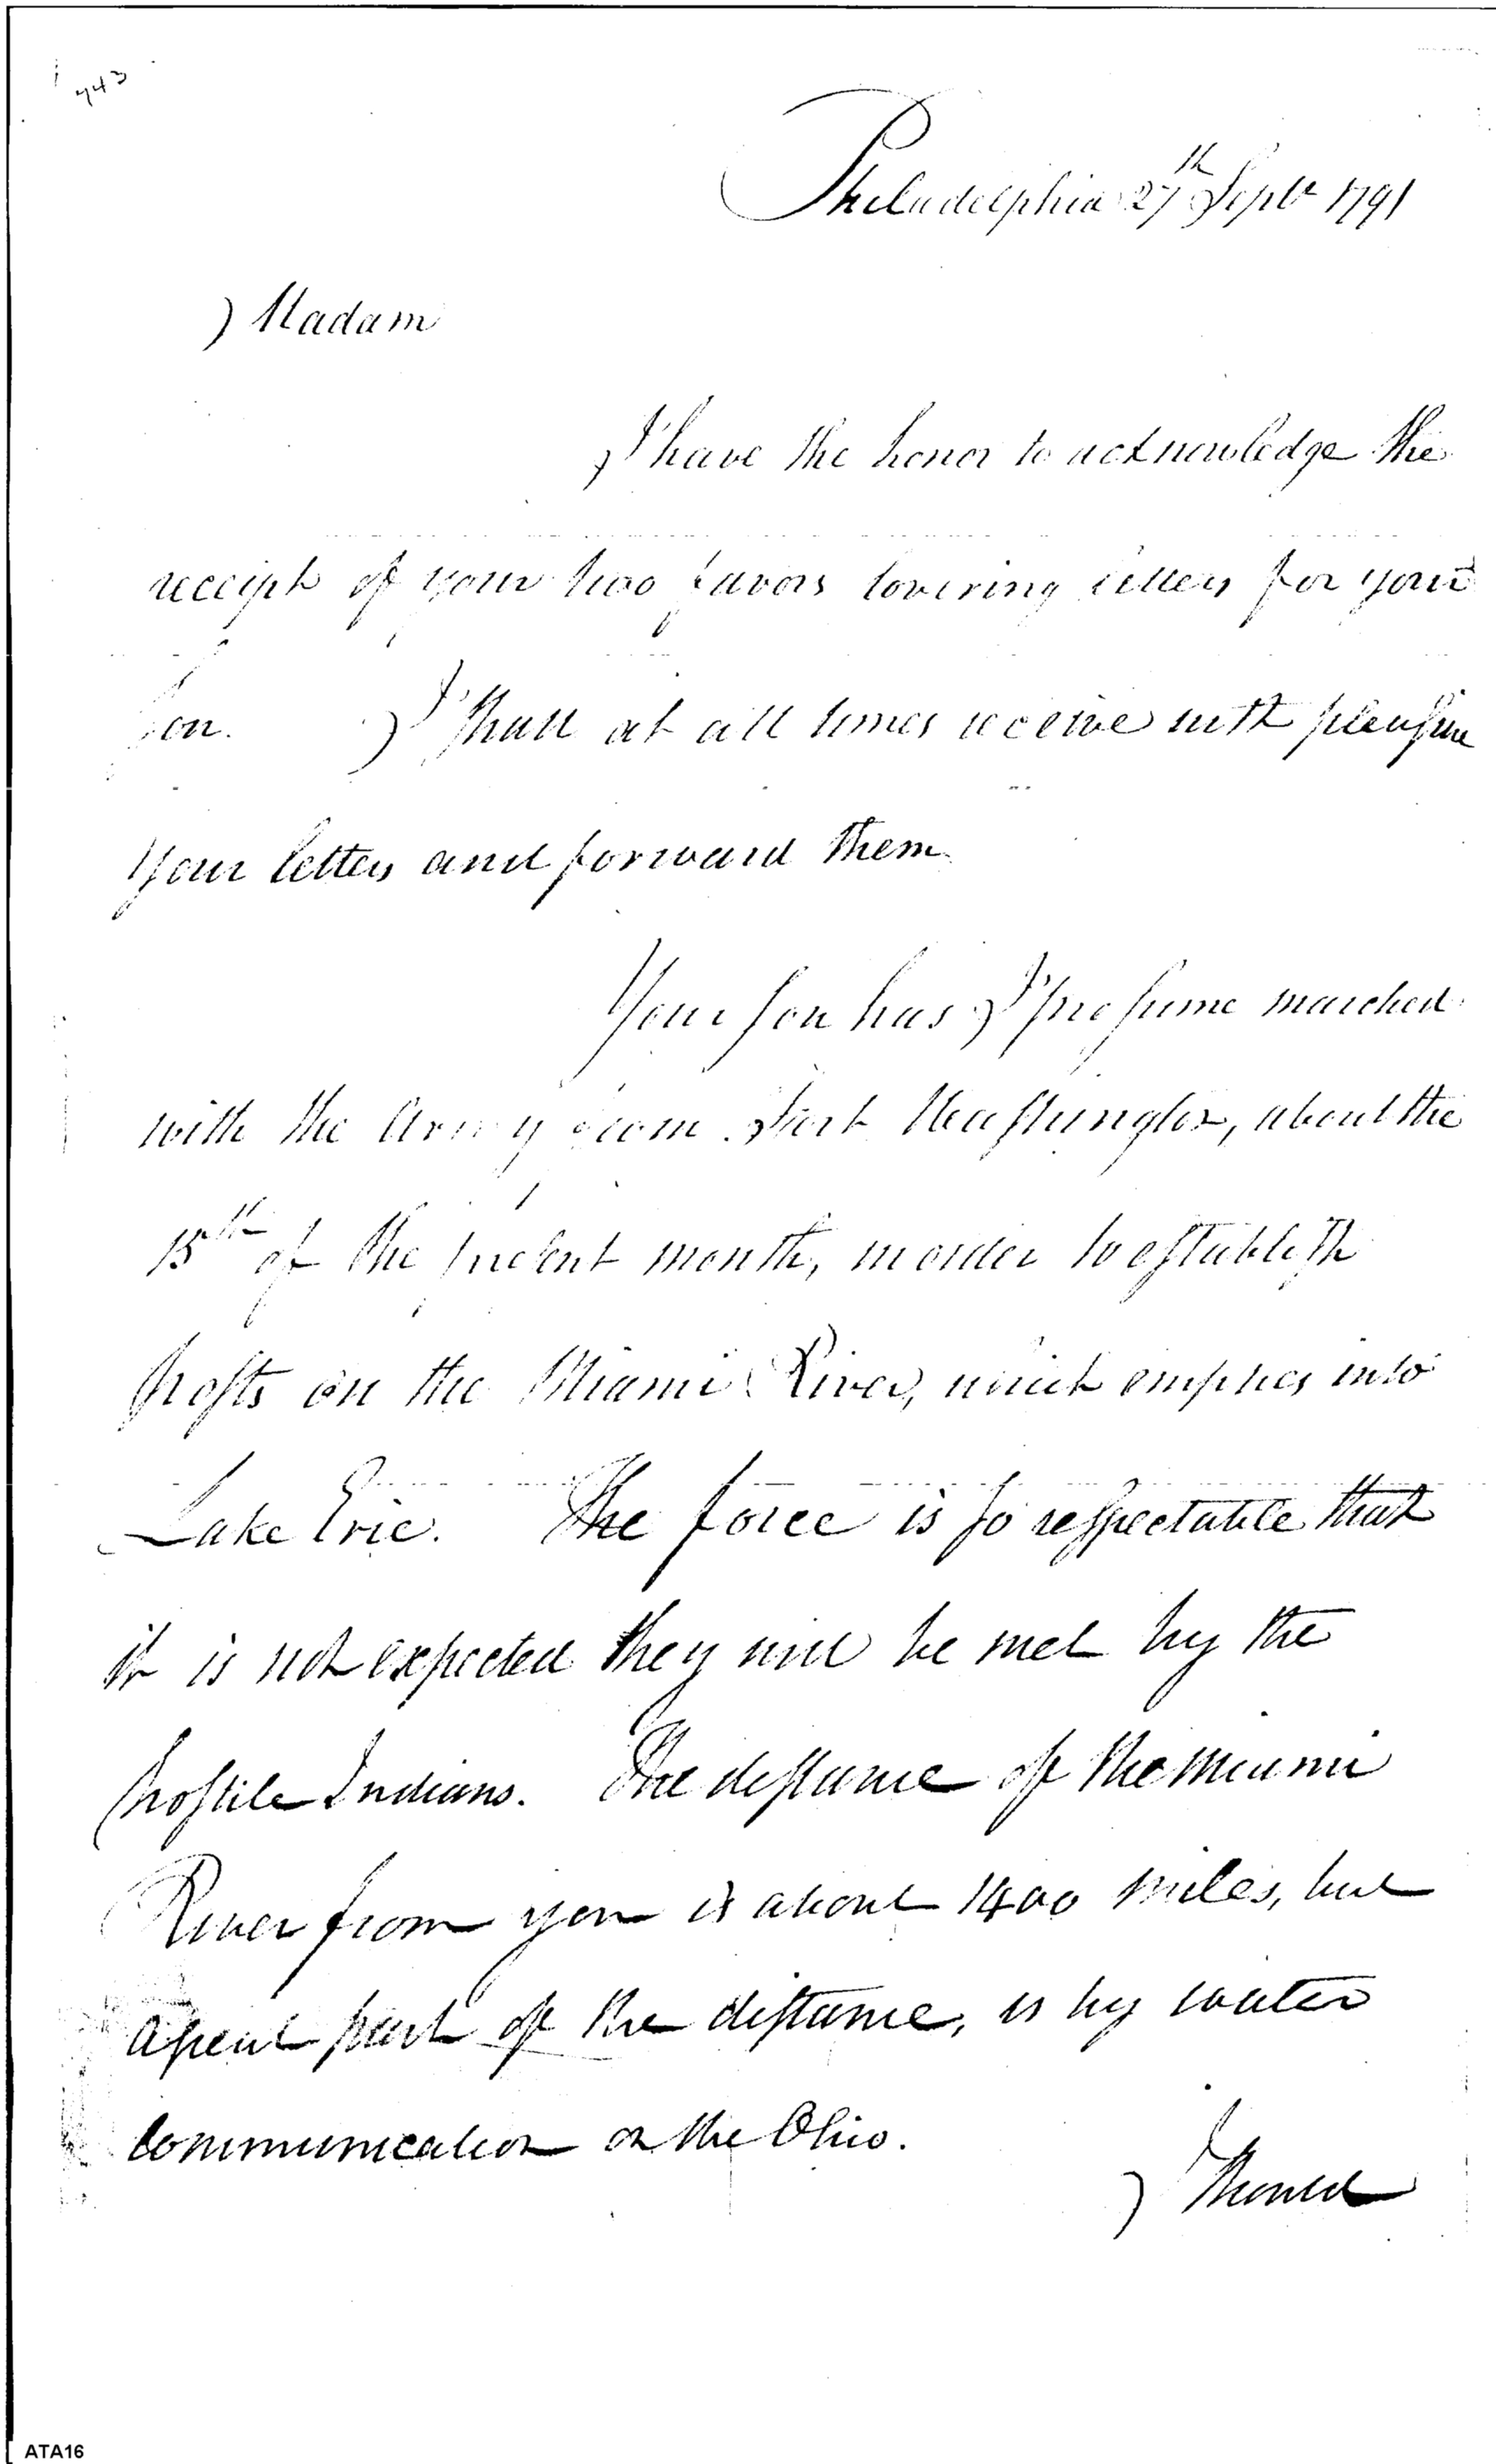 743
Philadelphia 27th Septr 1791
Madam
I have the honor to acknowledge the
receipt of your two favors covering letters for your
son. I shall at all times receive with pleasure
Your letters and forward them
Your son has I presume marched
with the Army from Fort Washington, about the
15th of the present month, in order to establish
posts on the Miami River, which empties into
Lake Erie. The force is so respectable that
it is not expected they will be met by the
hostile Indians. The distance of the Miami
River from you is about 1400 miles, but
a great part of the distance, is by water
Communication on the Ohio.
I should
ATA16